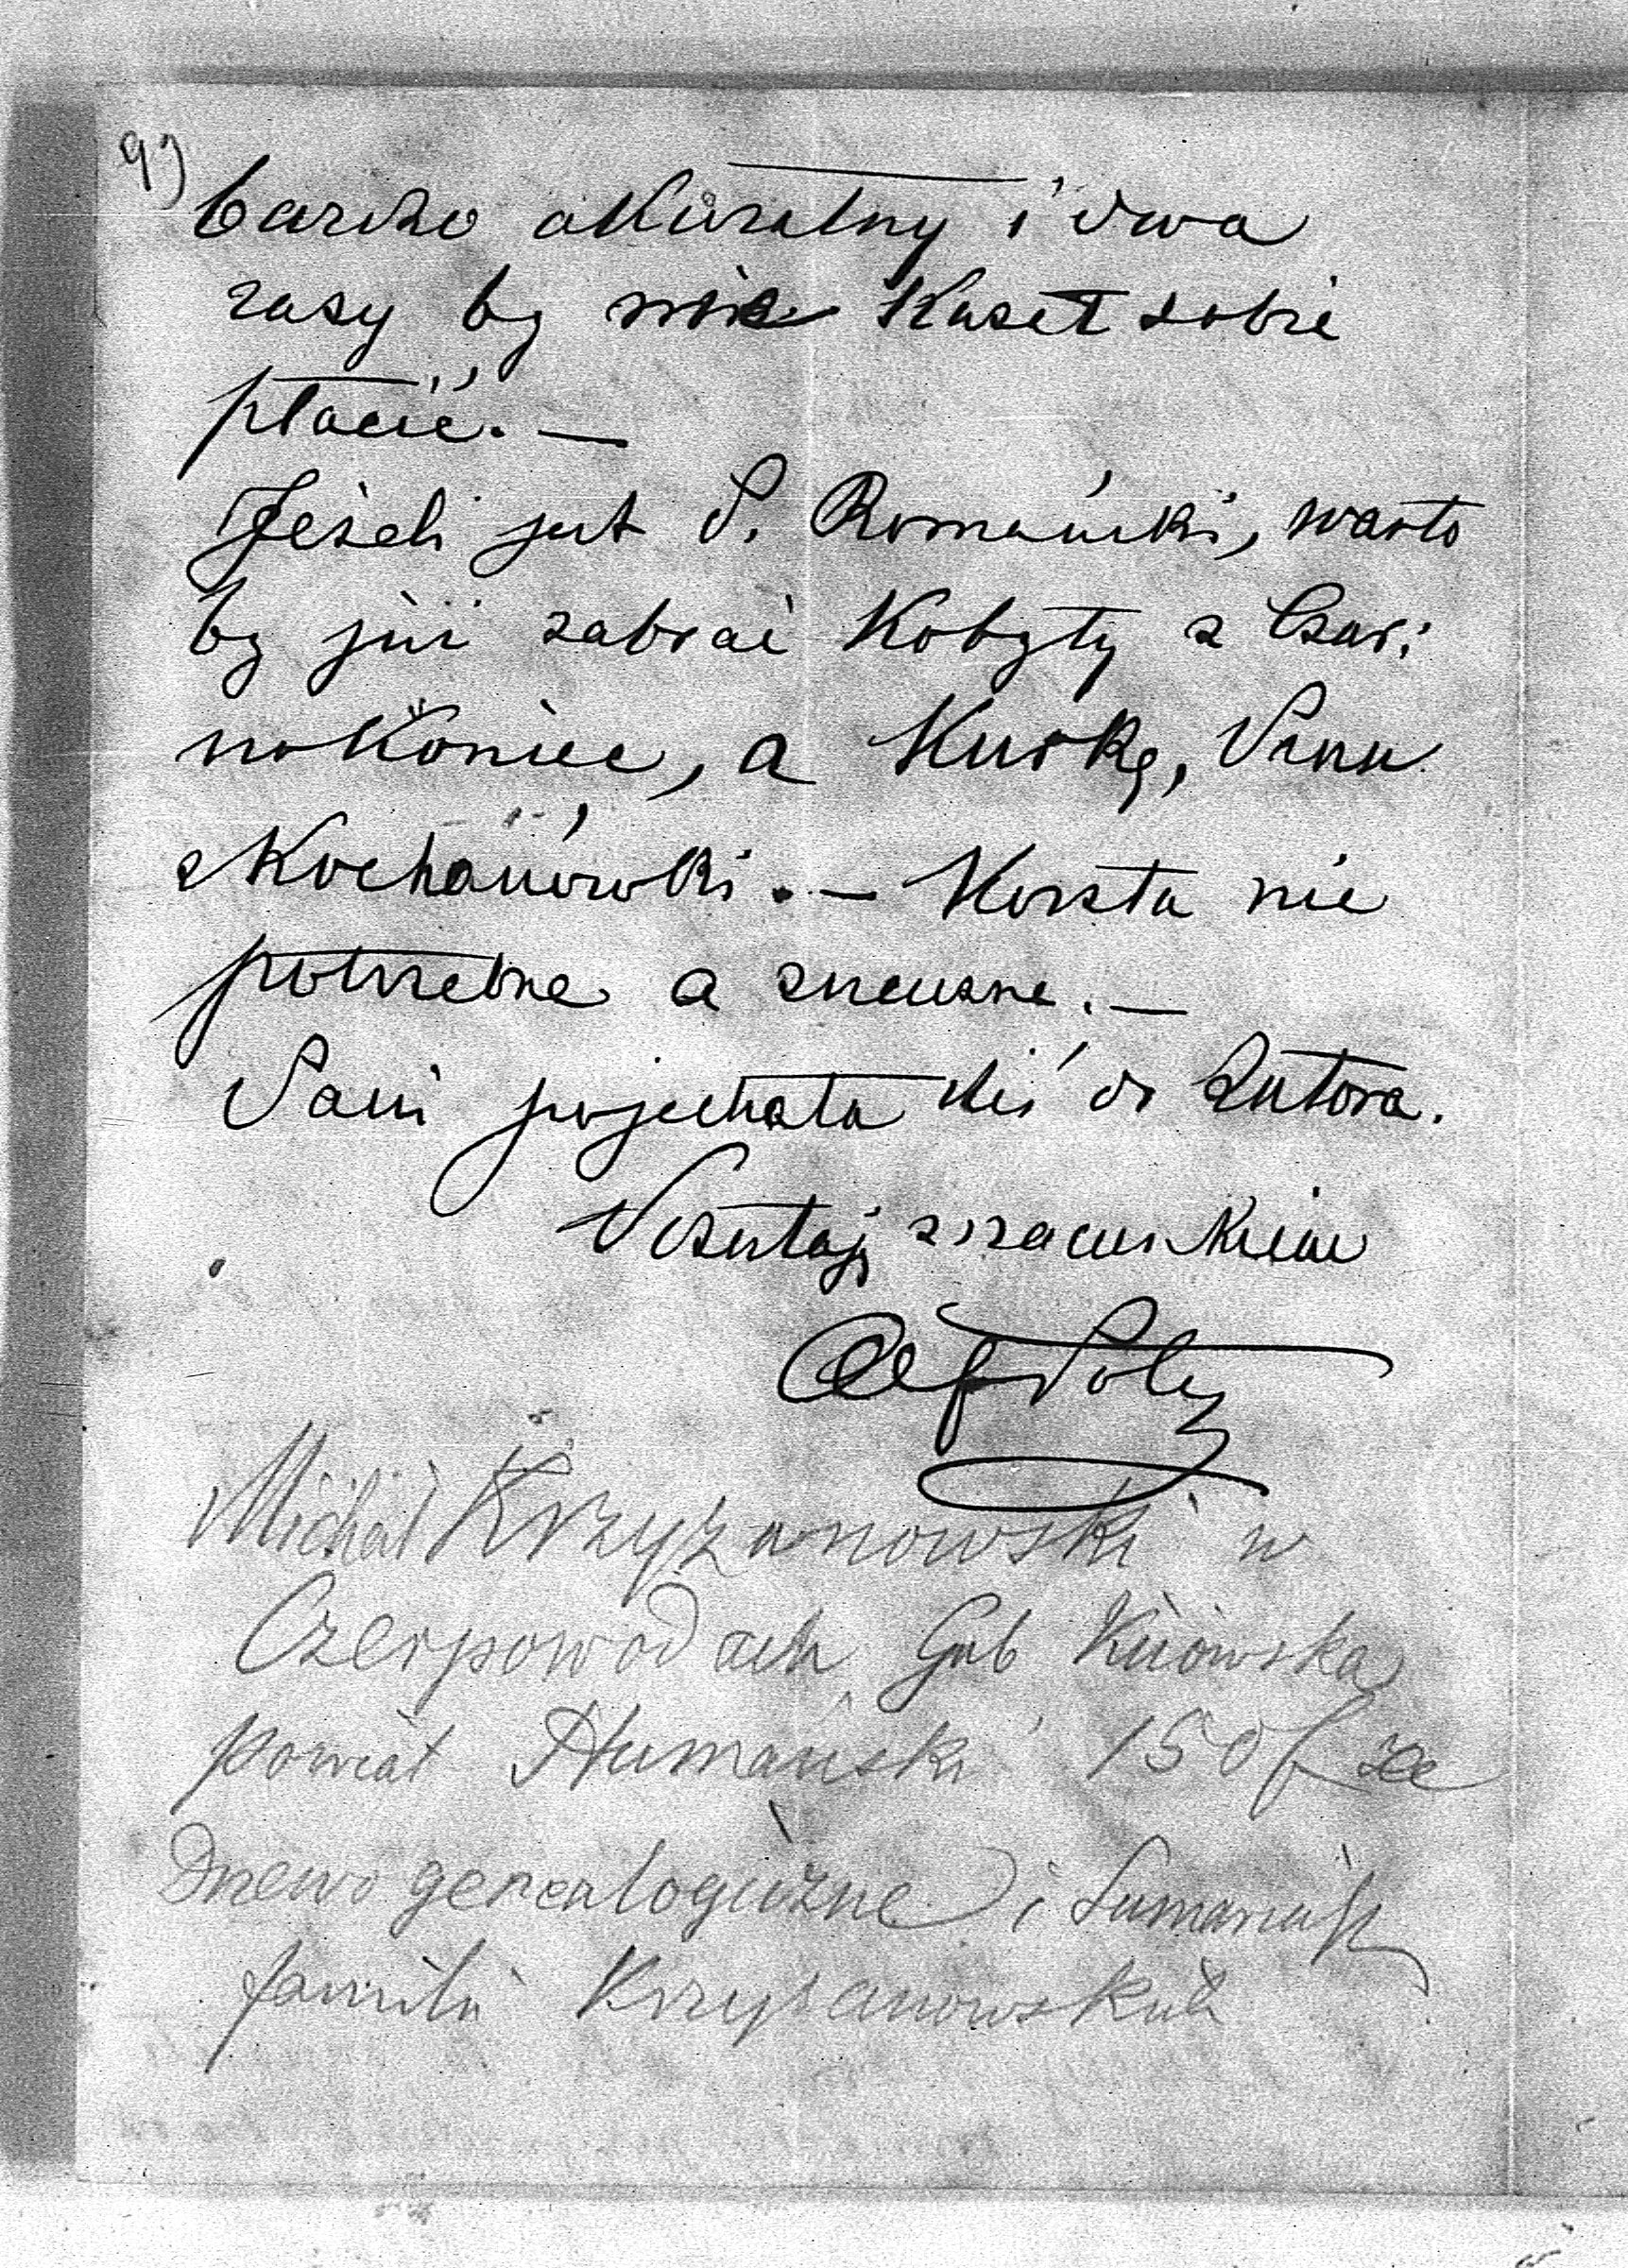 9)
bardzo akuratny i dwa
razy by nie kazał sobie
płacić. —
Jeżeli jest P. Romański, warto
by już zabrać Kobyły z Czar:
nokoniec, a Kurkę, Panu
Kochanowski. — Koszta nie
potrzebne a znaczne. —
Pani pojechała dziś do Lutora.
Zostaję z szacunkiem
Michał Krzyżanowski w
Czerpowodach Gub Kijowska
powiat Humański 150 f za
Drzewo genealogiczne i Sumariusz
familii Krzyżanowskich